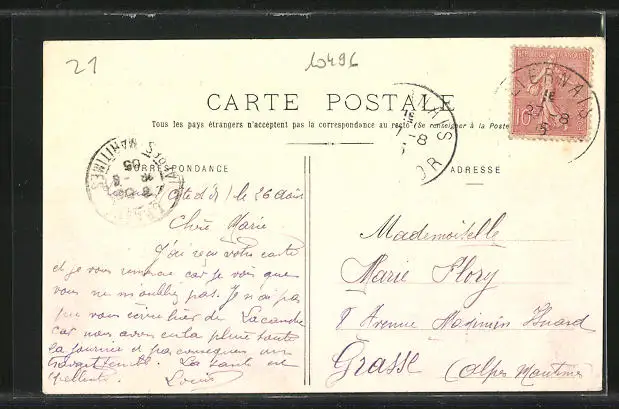 21
10496
CARTE POSTALE
Tous les pays étrangers n'acceptent pas la correspondance au recto (Se renseigner à la Poste
CORRESPONDANCE
ADRESSE
LIERNAIS
27 -8
10
ALPES MARITIMES
Côte d'Or le 26 Août
Chère Marie
J'ai reçu votre carte
et je vous remercie car je vois que
vous ne m'oubliez pas. Je n'ai pas
pu vous écrire hier de Lacanche
car nous avons eu la pluie toute
la journée et par conséquent un
La santé est
excellente. Louis
Mademoiselle
Marie Flory
8 Avenue Maximin Isnard
Grasse (Alpes Maritimes